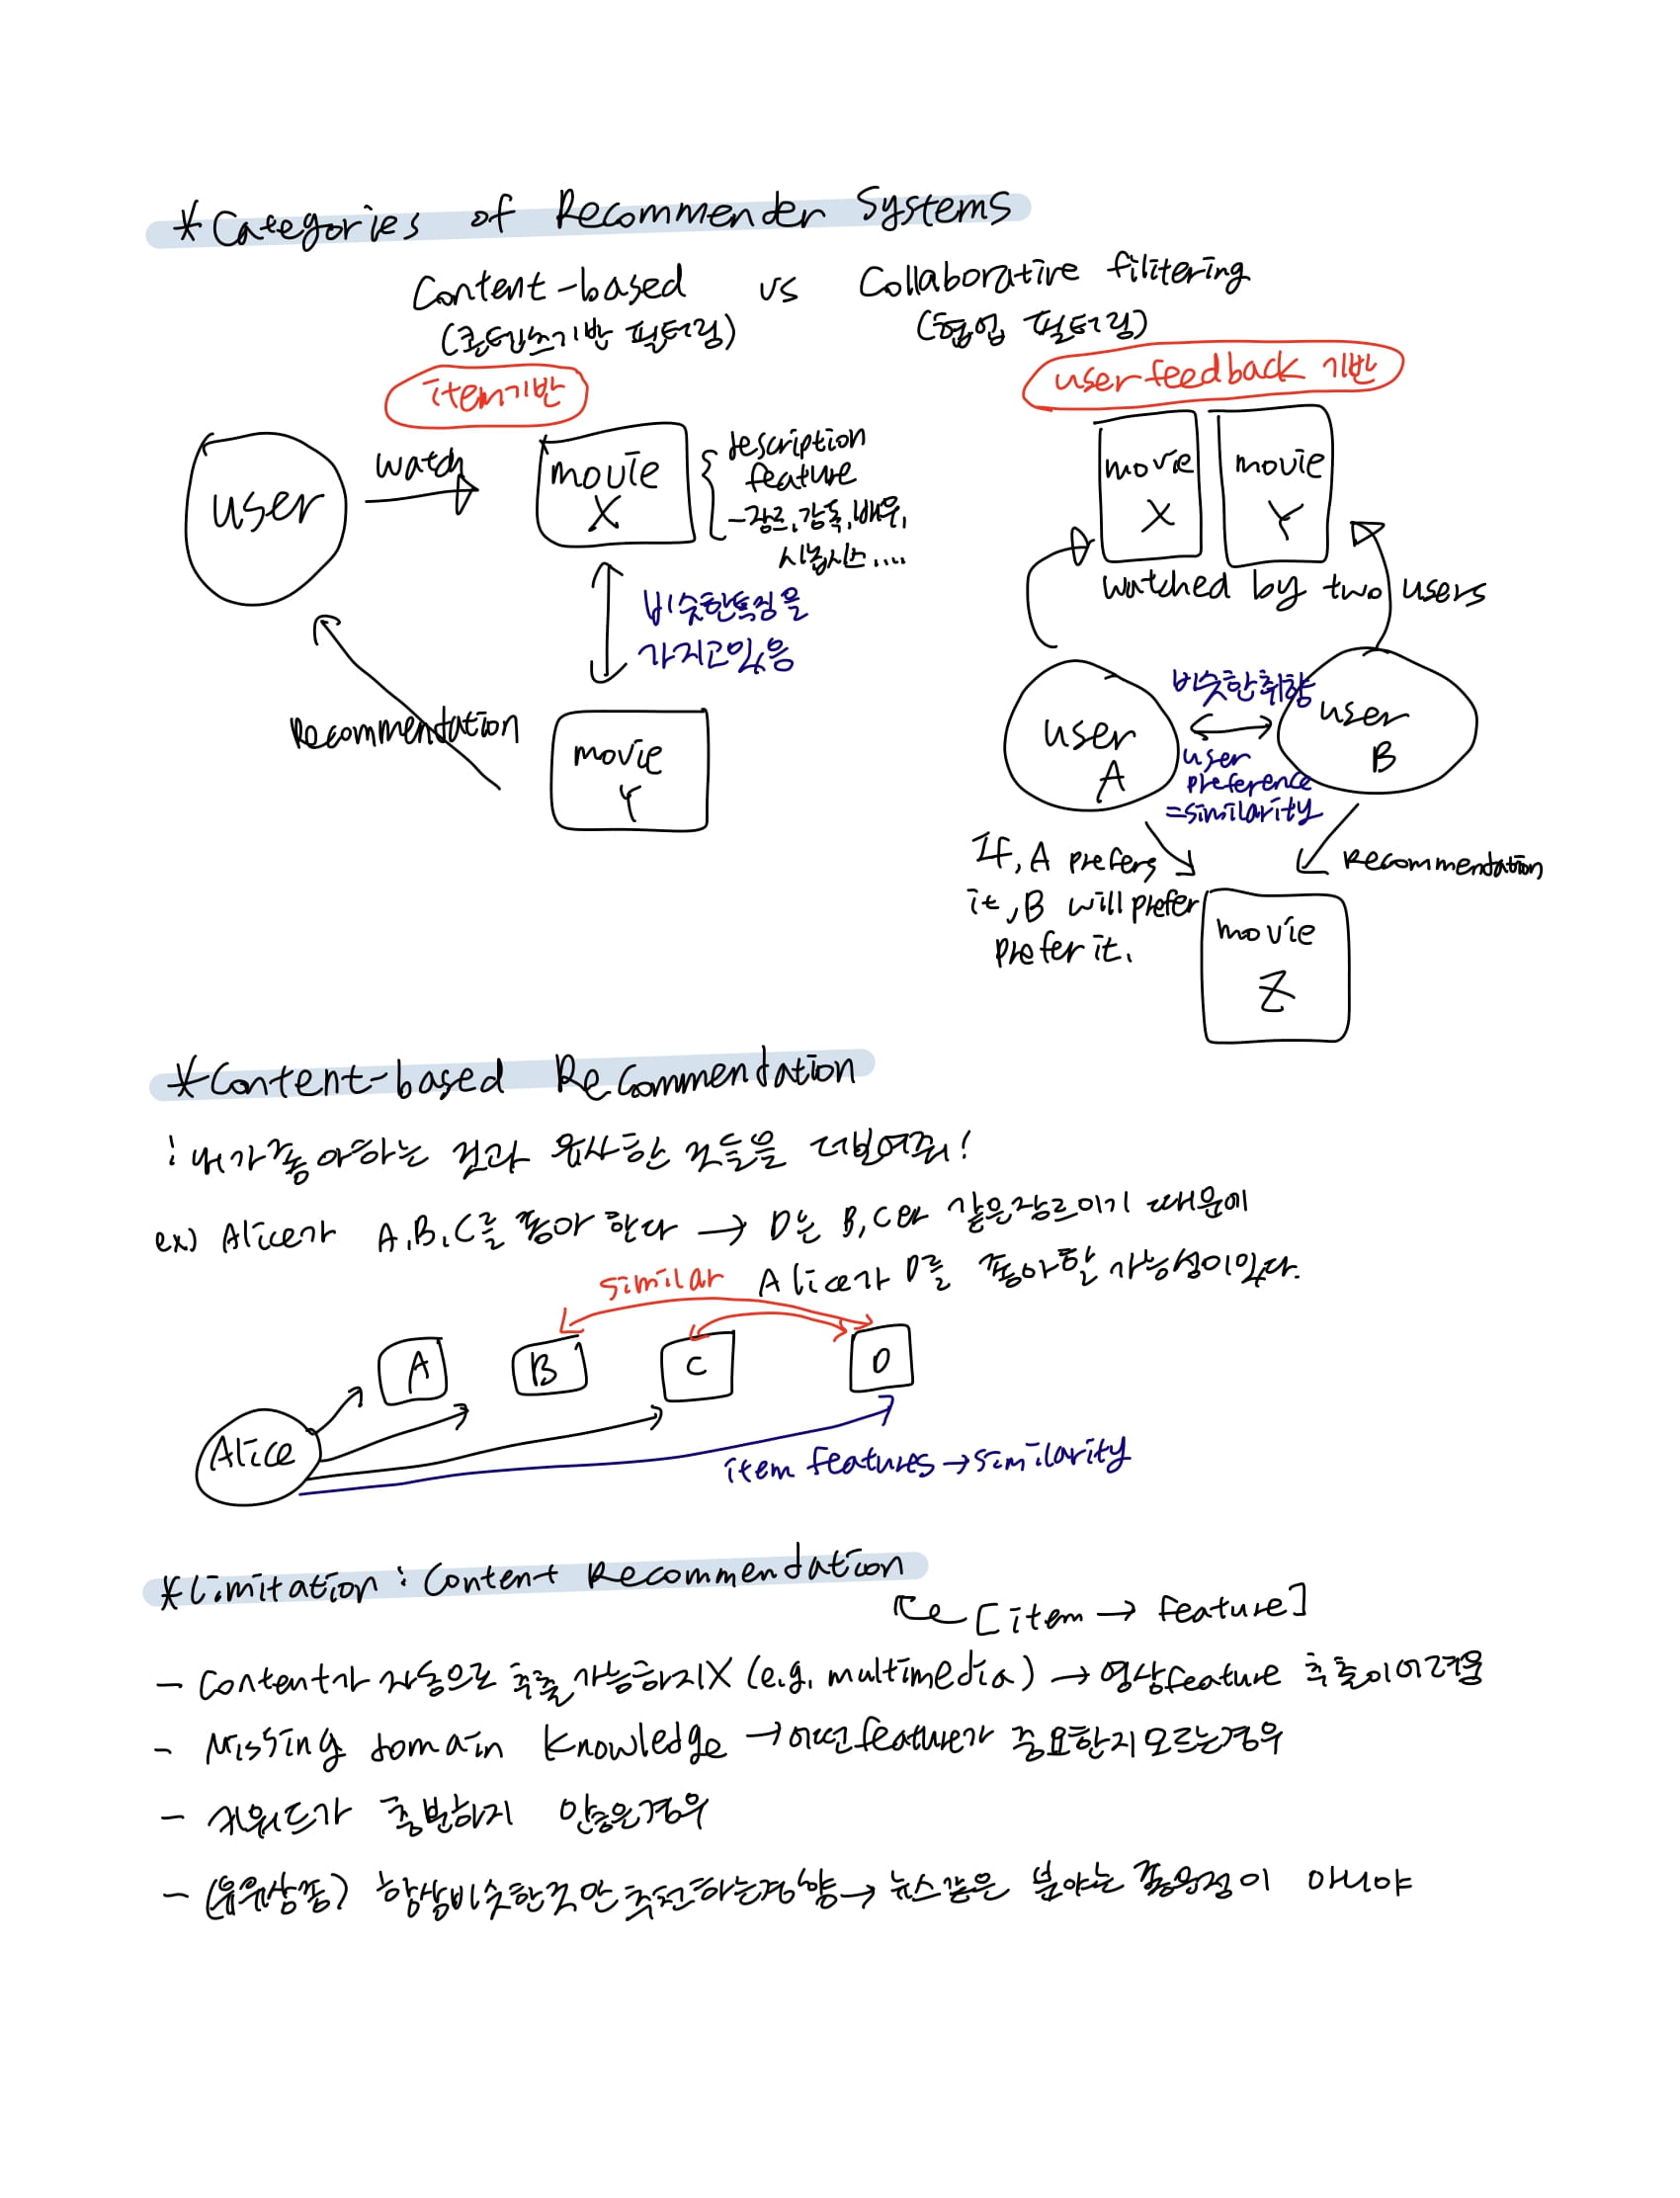 *Categories of Recommender Systems
Content-based vs Collaborative filitering
(콘텐츠기반 필터링) (협업 필터링)
item기반
user feedback 기반
user
watch
movie
X
description
feature
-장르, 감독, 배우,
시놉시스....
비슷한특징을
가지고있음
Recommendation
movie
Y
movie
X
movie
Y
watched by two users
user
A
비슷한취향
user
preference
=similarity
user
B
If, A prefers
it, B will prefer
prefer it.
Recommendation
movie
Z
*Content-based Recommendation
: 내가좋아하는 것과 유사한 것들을 더보여줘!
ex) Alice가 A, B, C를 좋아한다 → D는 B, C와 같은장르이기 때문에
Alice가 D를 좋아할 가능성이있다.
similar
A
B
C
D
Alice
item features→similarity
*Limitation: Content Recommendation
[item → feature]
- Content가 자동으로 추출 가능하지X (e.g. multimedia) → 영상feature 추출이어려움
- Missing domain knowledge →어떤feature가 중요한지모르는경우
- 키워드가 충분하지 안흥은경우
- (유유상종) 항상비슷한것만 추천하는경향→ 뉴스같은 분야는 좋은점이 아니야